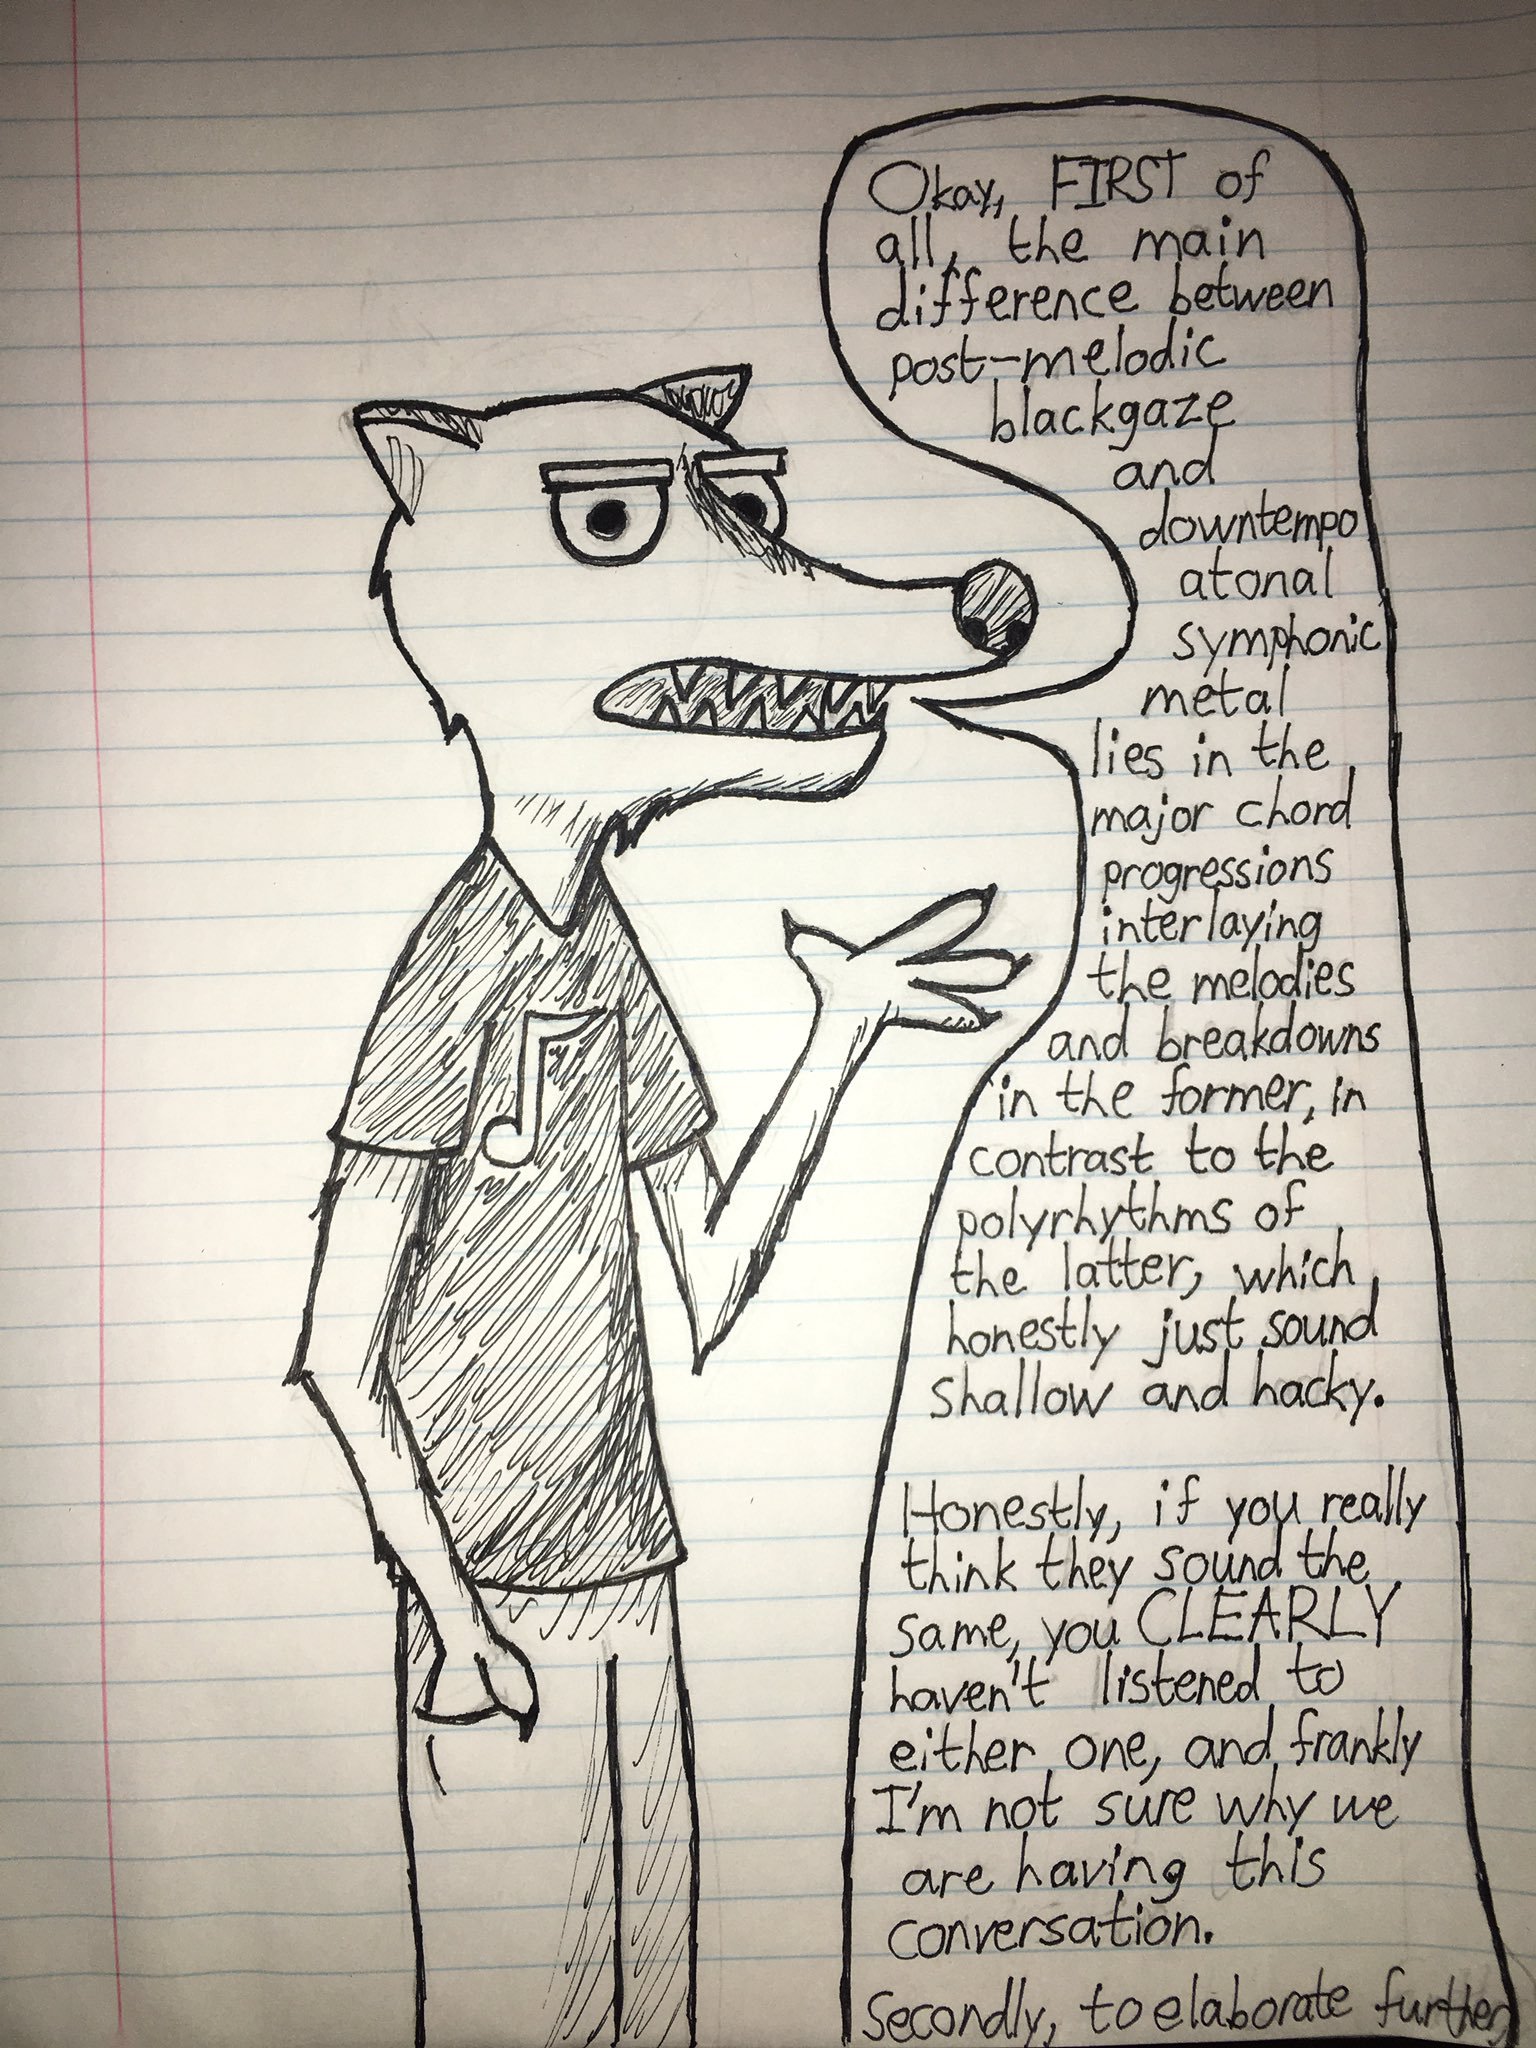 Okay, FIRST of
all, the main
difference between
post-melodic
blackgaze
and
downtempo
atonal
symphonic
metal
lies in the
major chord
progressions
interlaying
the melodies
and breakdowns
in the former, in
contrast to the
polyrhythms of
the latter, which
honestly just sound
shallow and hacky.
Honestly, if you really
think they sound the
same, you CLEARLY
haven't listened to
either one, and frankly
I'm not sure why we
are having this
conversation.
Secondly, to elaborate further,